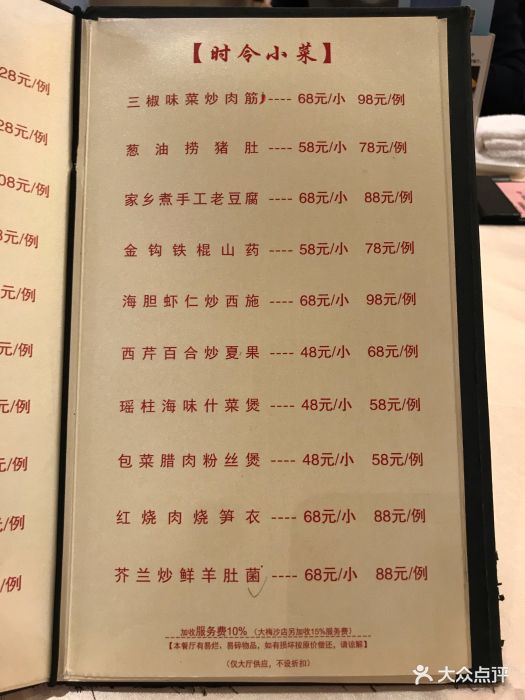 【时令小菜】
三椒味菜炒肉筋----68元/小 98元/例
葱油捞猪肚----58元/小 78元/例
家乡煮手工老豆腐----68元/小 88元/例
金钩铁棍山药----58元/小 78元/例
海胆虾仁炒西施----68元/小 98元/例
西芹百合炒夏果----48元/小 68元/例
瑶柱海味什菜煲----48元/小 58元/例
包菜腊肉粉丝煲----48元/小 58元/例
红烧肉烧笋衣----68元/小 88元/例
芥兰炒鲜羊肚菌----68元/小 88元/例
加收服务费10%（大梅沙店另加收15%服务费）
【本餐厅有易烂、易碎物品，如有损坏按原价偿还，请谅解】
（仅大厅供应，不设折扣）
28元/例
28元/例
08元/例
8元/例
元/例
元/例
元/例
元/例
元/例
元/例
大众点评